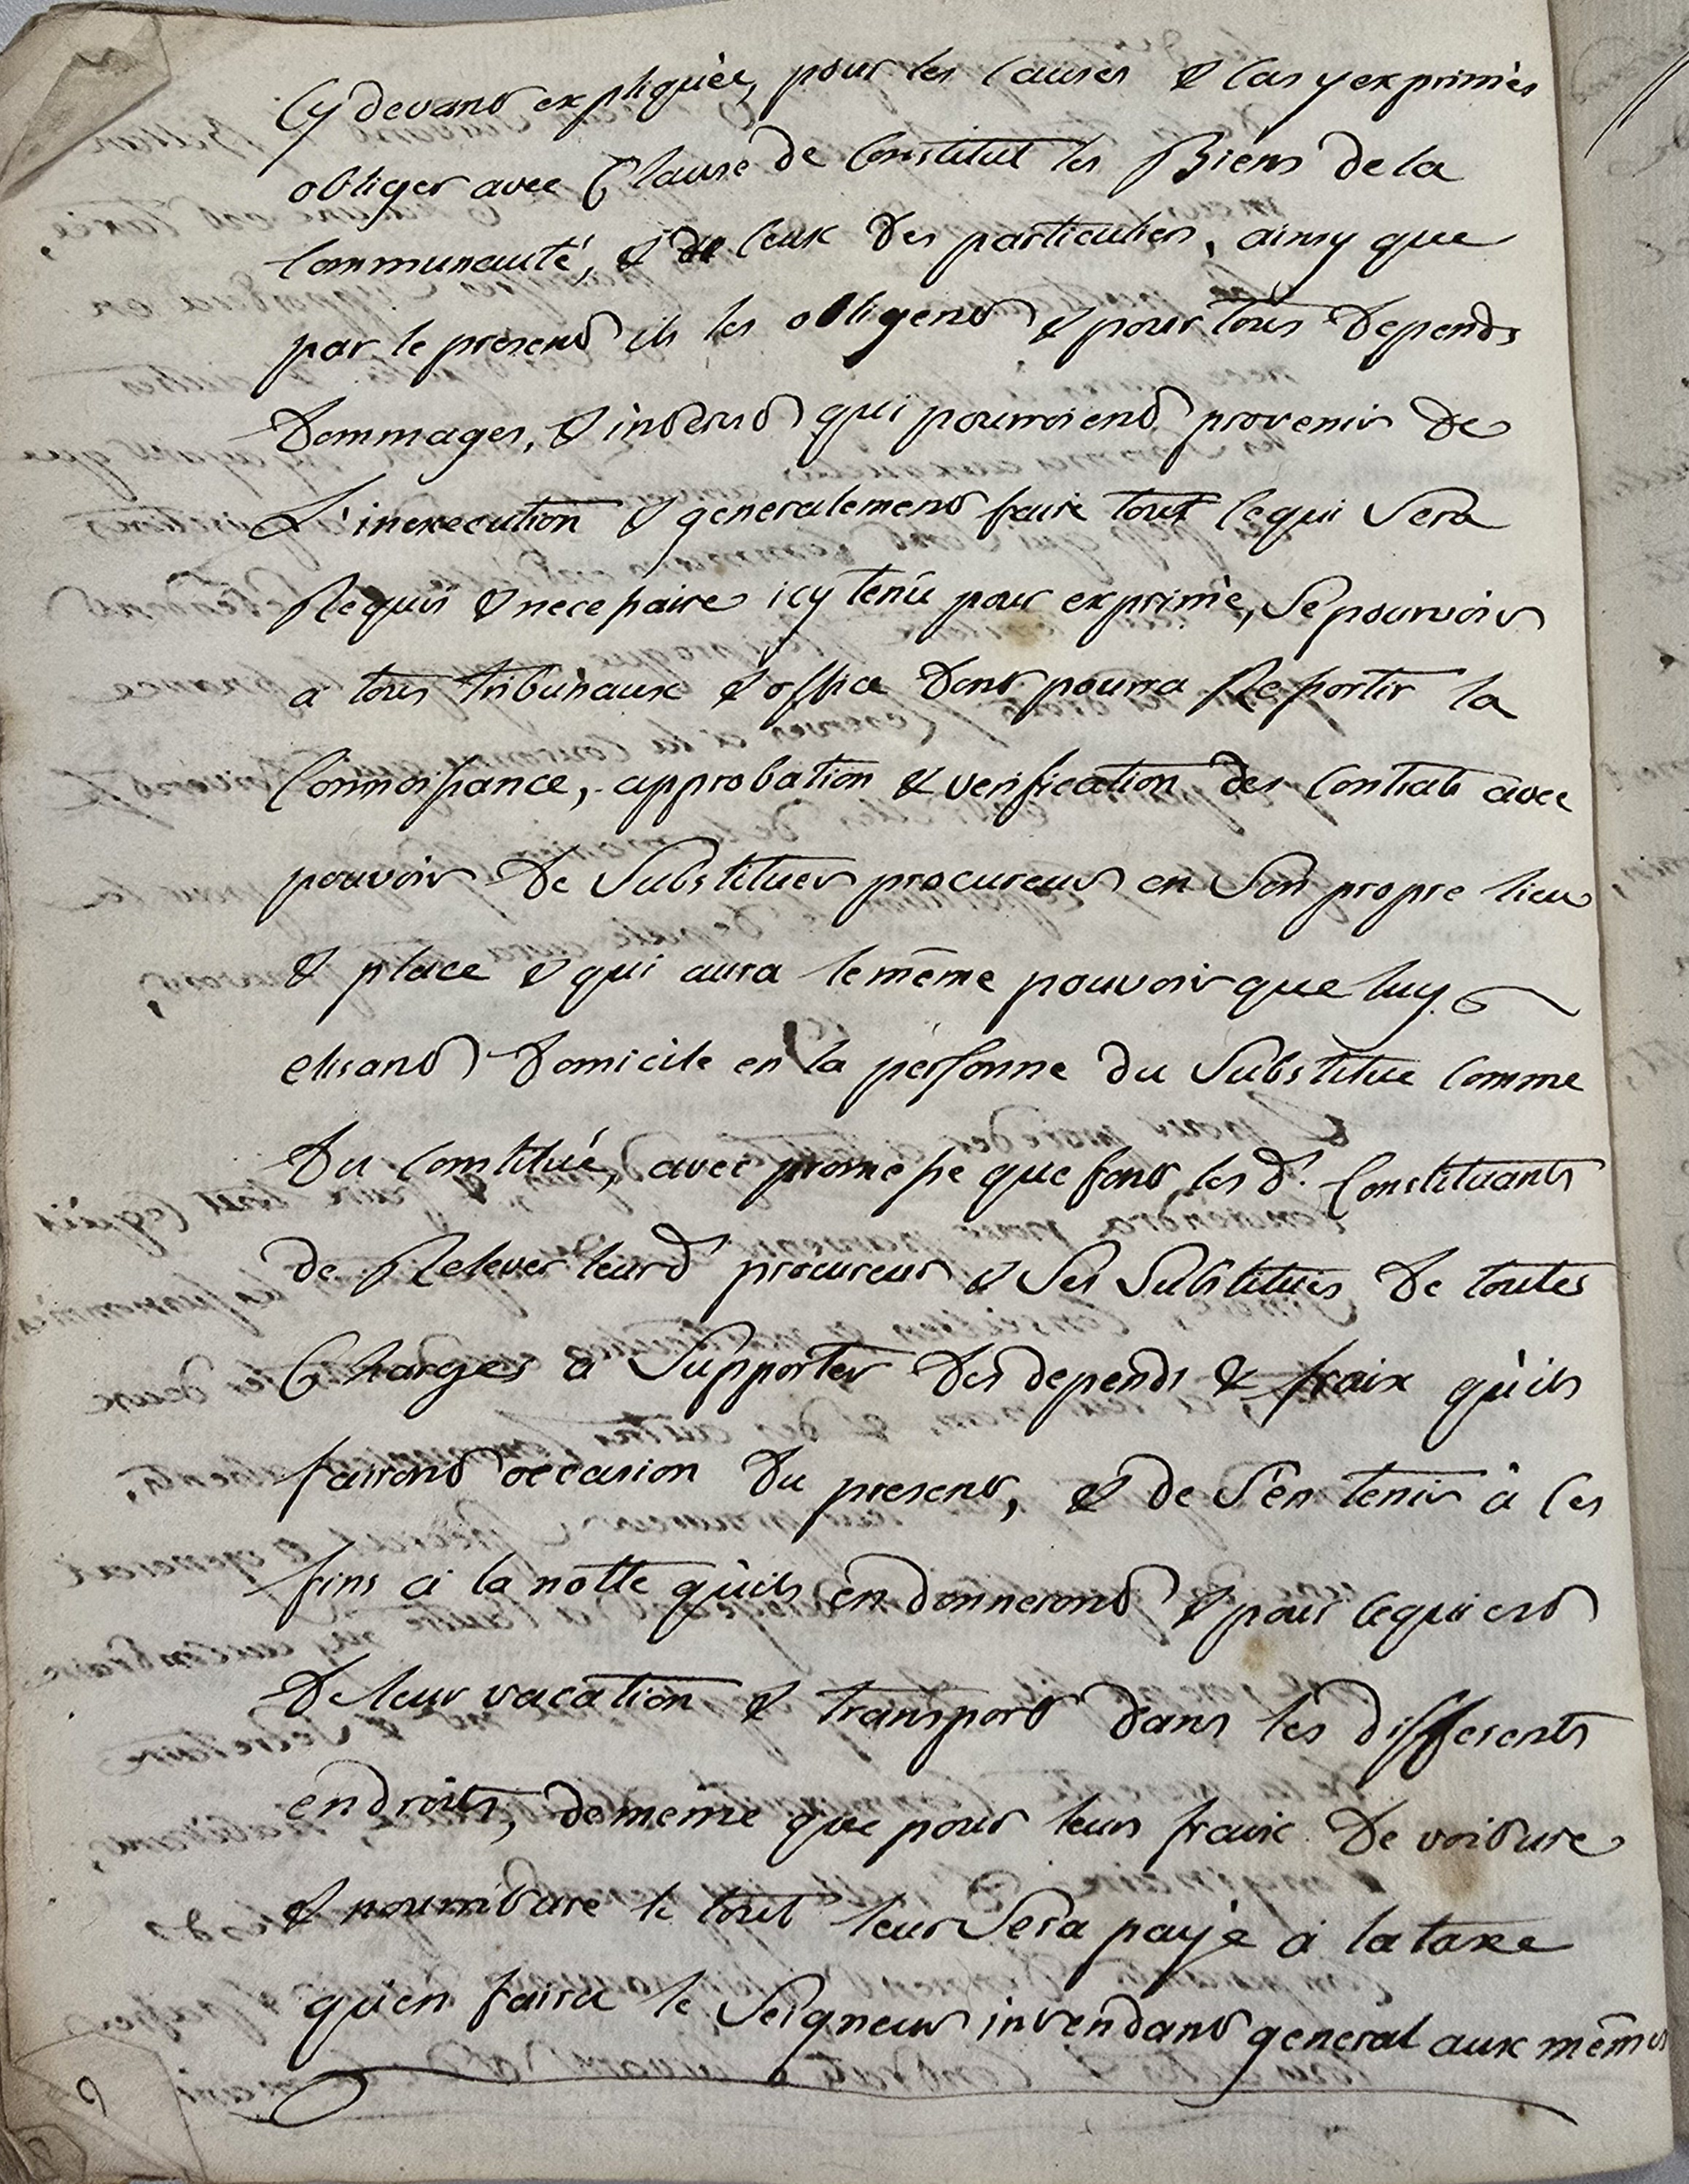 Cy devant expliquée, pour les causes & cas y exprimés
obliger avec Clause de Constitut les Biens de la
Communauté, & de ceux des particuliers, ainsy que
par le present ils les obligent & pour tous depends
Dommages, & interest qui pourroient provenir de
L'inexecution & generalement faire tout ce qui sera
Requis & necessaire icy tenu pour exprimé, se pourvoir
a tous tribunaux & office dont pourra Ressortir la
Connoissance, approbation & verification des contrats avec
pouvoir de substituer procureur en son propre lieu
& place & qui aura le même pouvoir que luy
elisant Domicile en la personne du substitué comme
Du constitué, avec promesse que font les d.ts Constituants
de Relever leur d.t procureur & ses substitués de toutes
Charges a supporter des depends & fraix qu'ils
fairont occasion du present, & de s'en tenir à ces
fins a la notte qu'ils en donneront & pour ce qui est
De leur vacation & transport dans les differents
endroits, de meme que pour leurs fraix de voiture
& nourriture le tout leur sera payé a la taxe
qu'en faira le Seigneur intendant general aux mêmes